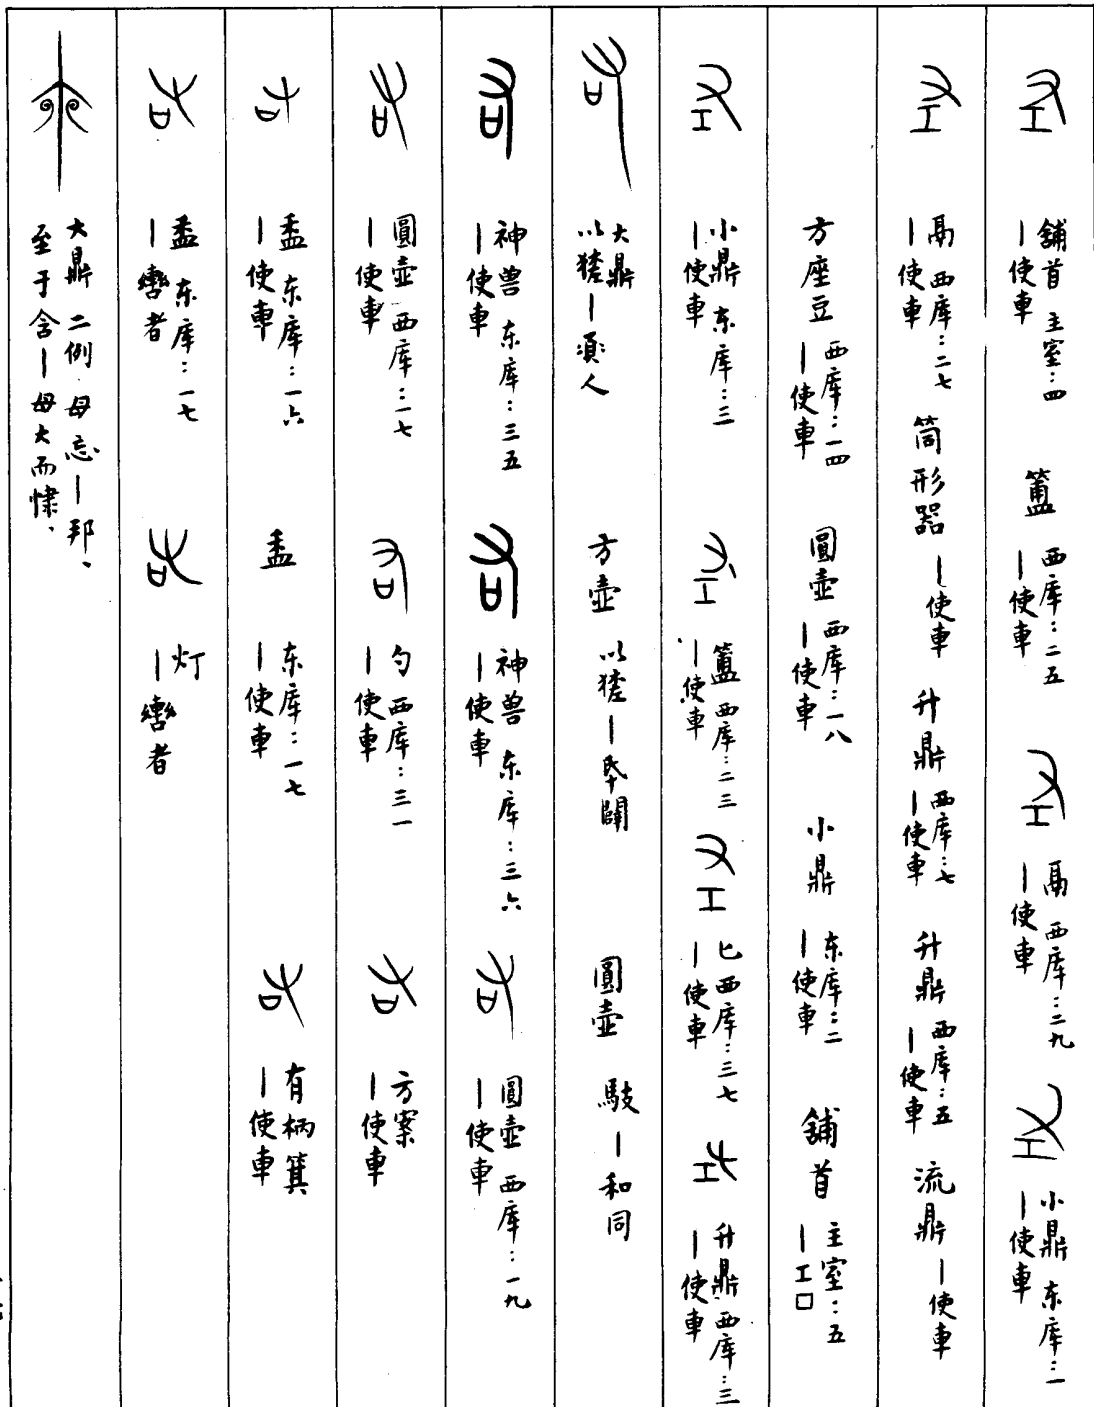 鋪首 主室:四 ｜使車 簠 西库:二五 ｜使車 鬲 西库:二九 ｜使車 小鼎 东库:一 ｜使車
鬲 西库:二七 ｜使車 筒形器 ｜使車 升鼎 西库:七 ｜使車 升鼎 西库:五 ｜使車 流鼎 ｜使車
方座豆 西库:一四 ｜使車 圓壺 西库:一八 ｜使車 小鼎 东库:二 ｜使車 鋪首 主室:五 ｜工□
小鼎 东库:三 ｜使車 簠 西库:二三 ｜使車 匕 西库:三七 ｜使車 升鼎 西库:三 ｜使車
大鼎 以猹｜人 方壺 以猹｜闢 圓壺 ｜和同
神兽 东库:三五 ｜使車 神兽 东库:三六 ｜使車 圓壺 西库:一九 ｜使車
圓壺 西库:一七 ｜使車 勺 西库:三一 ｜使車 方案 ｜使車
盉 东库:一六 ｜使車 盉 东库:一七 ｜使車 有柄箕 ｜使車
盉 东库:一七 ｜轡者 灯 ｜轡者
大鼎 二例 母忘｜邦、至于含｜母大而悚、